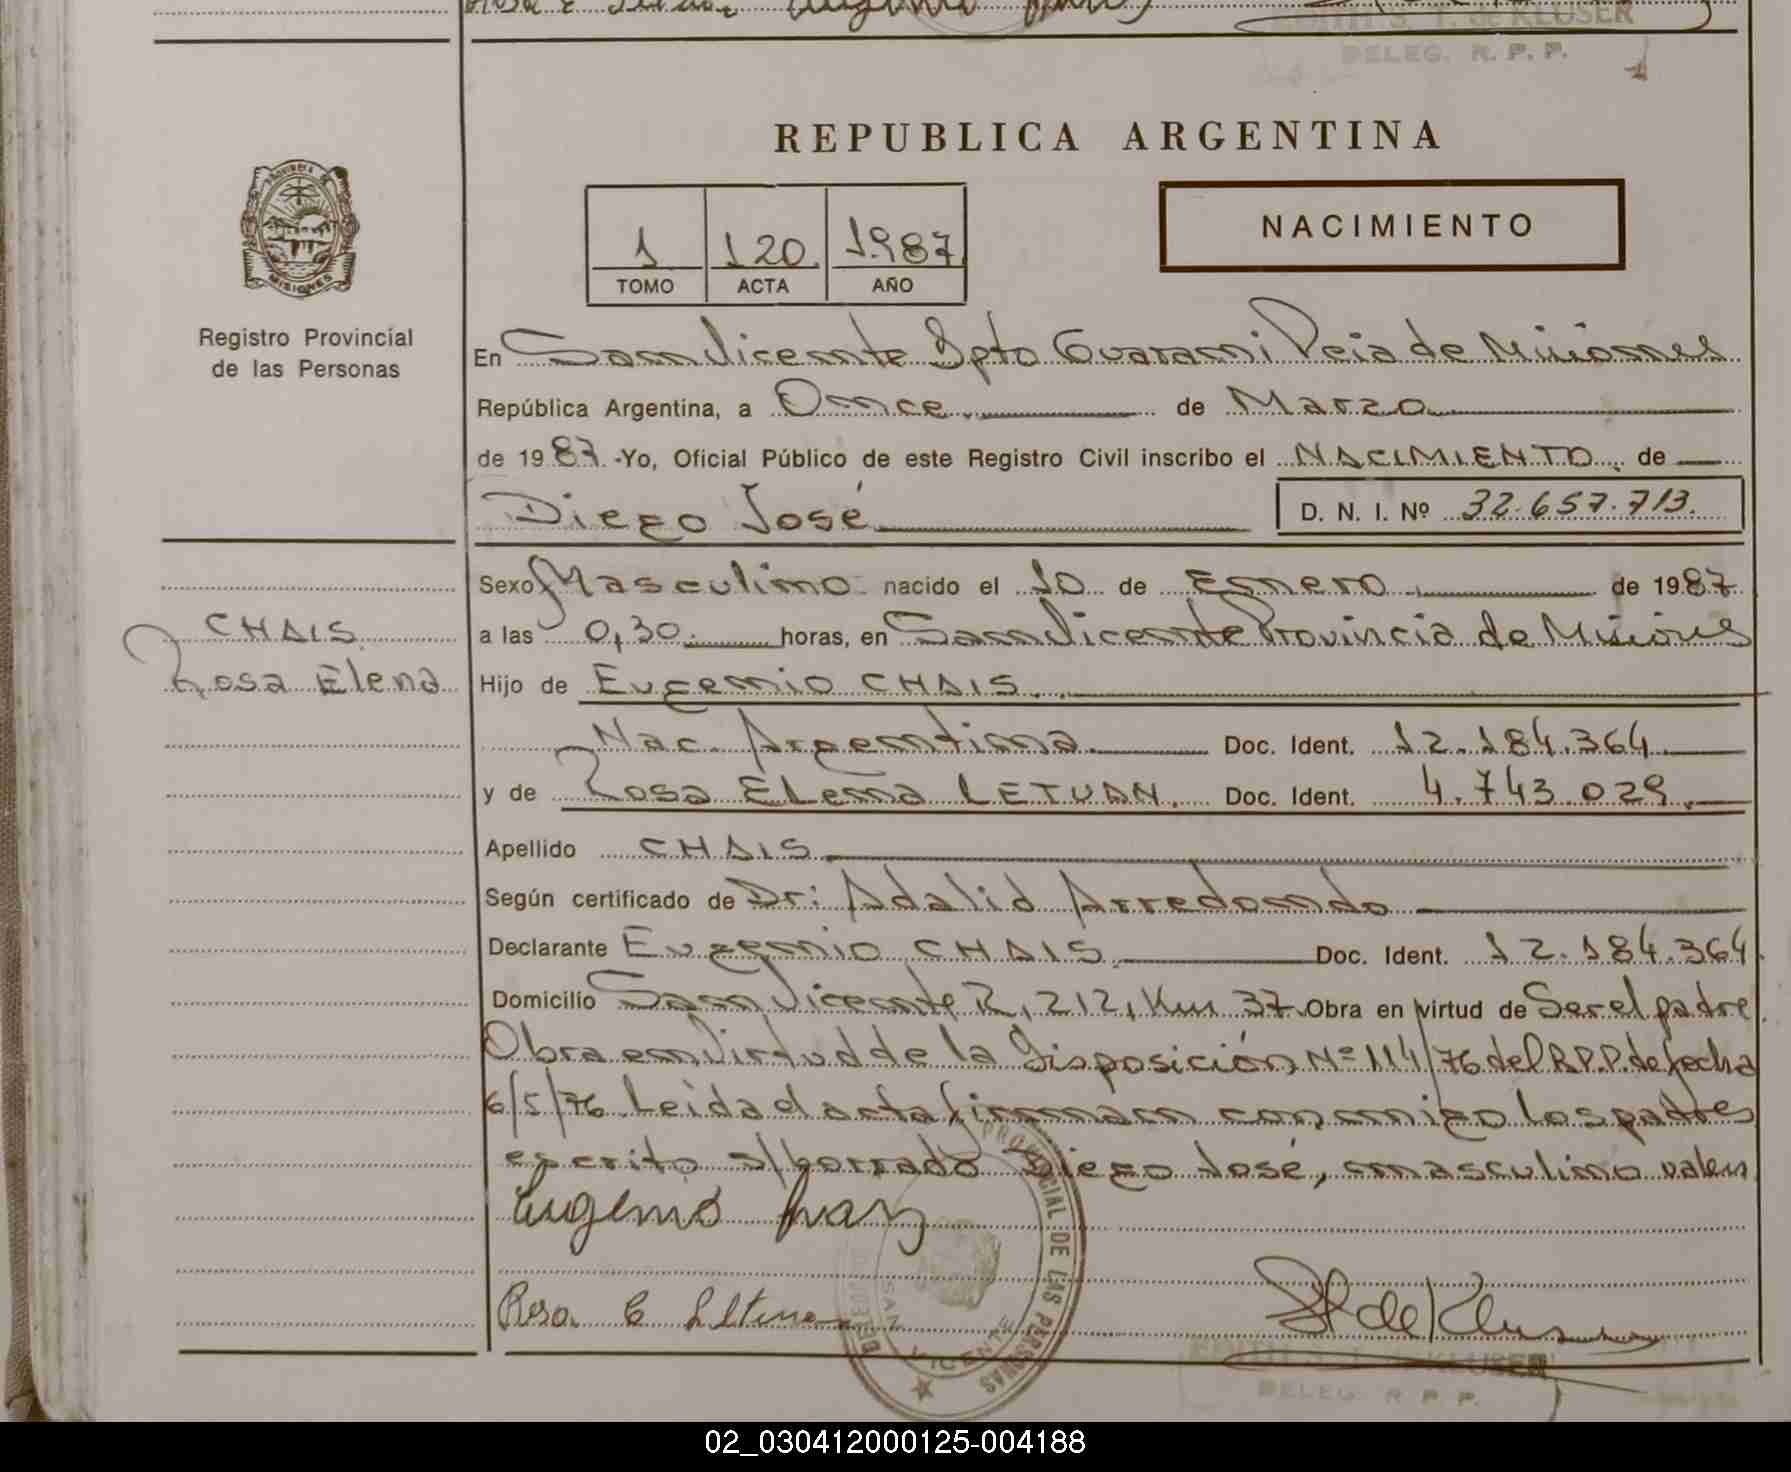 EDITH S. T. de KLUSER
DELEG. R. P. P.
REPUBLICA ARGENTINA
PROVINCIA DE
MISIONES
Registro Provincial
de las Personas
1 120 1.987
TOMO ACTA AÑO
NACIMIENTO
En San Vicente Dpto Guarani Pcia de Misiones
República Argentina, a Once de Marzo
de 1987.-Yo, Oficial Público de este Registro Civil inscribo el NACIMIENTO. de
Diego José
D. N. I. Nº 32.657.713.
Sexo Masculino nacido el 10 de Enero de 1987
a las 0,30. horas, en San Vicente Provincia de Misiones
Hijo de Eugenio CHAIS.
CHAIS
Rosa Elena
Nac. Argentina. Doc. Ident. 12.184.364
y de Rosa Elena LETUAN. Doc. Ident. 4.743.029.
Apellido CHAIS
Según certificado de Dr: Adalid Arredondo
Declarante Eugenio CHAIS. Doc. Ident. 12.184.364
Domicilio San Vicente R, 212, Km 37. Obra en virtud de Ser el padre
Obra en Virtud de la Disposición Nº 114/76 del R.P.P. de fecha
6/5/76. Leida el acta firman conmigo los padres
escrito s/borrado Diego José, masculino valen
Eugenio
Rosa E
PROVINCIAL DE LAS PERSONAS
SAN VICENTE
EDITH S. T. de KLUSER
DELEG. R. P. P.
02_030412000125-004188